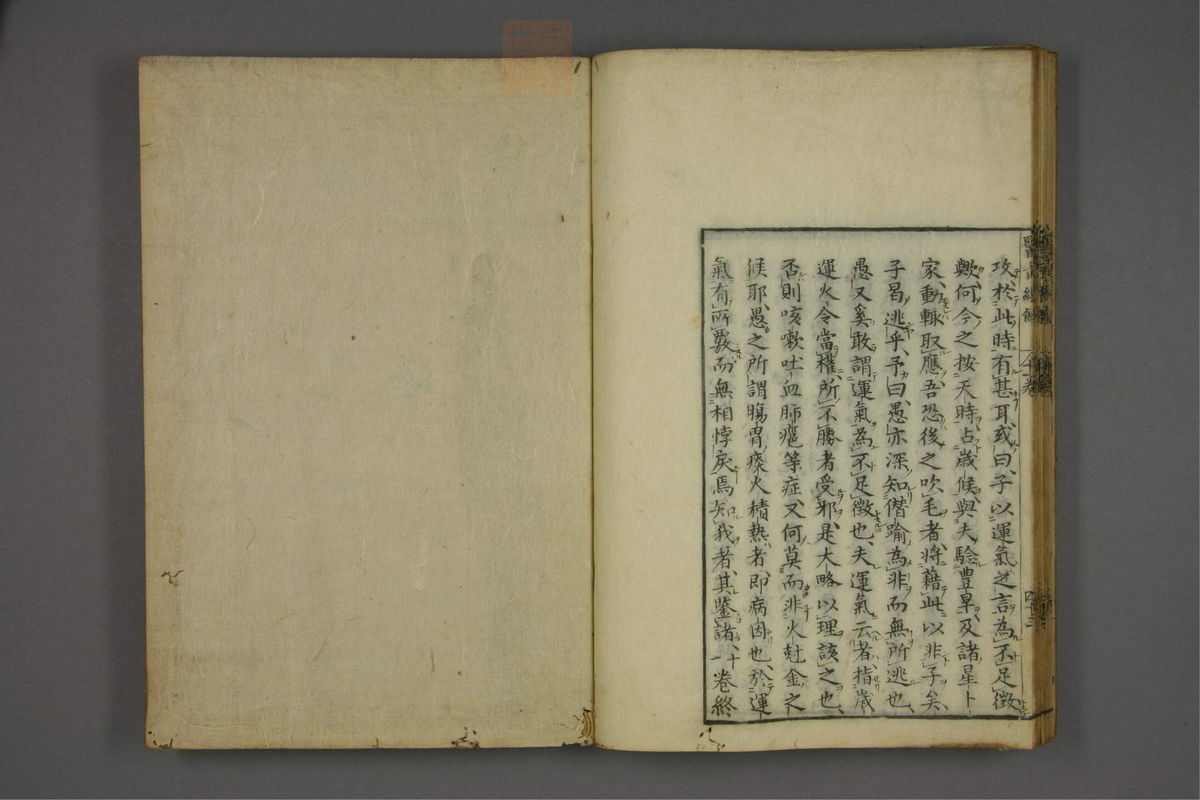 攻於此時有甚耳或曰子以運氣之言為不足徵
歟何今之按天時占歳候與夫驗豊旱及諸星卜
家動輙取應吾恐後之吹毛者将藉此以非子矣
子曷逃乎予曰愚亦深知僭踰為非而無所逃也
愚又奚敢謂運氣為不足徵也夫運氣云者指歳
運火令當權所不勝者受邪是大略以理該之也
否則咳嗽吐血肺癰等症又何莫而非火尅金之
候耶愚之所謂腸胃痰火積熱者即病因也於運
氣有所覈而無相悖戻焉知我者其鑒諸十一卷終